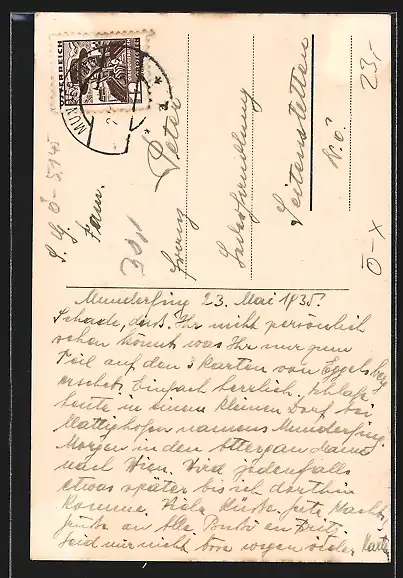 ÖSTERREICH
S. G.
Fam.
Franz Peter
Seitenstetten
N. Ö.
23,-
Ö-X
Ö-5145
Munderfing 23. Mai 1935.
Schade, dass Ihr nicht persönlich
sehen könnt was Ihr nur zum
Teil auf den 3 Karten von Eggelsberg
ersehet. Einfach herrlich. Schlafe
heute in einem kleinen Dorf bei
Mattighofen namens Munderfing.
Morgen in den Attergau dann
nach Wien. Wird jedenfalls
etwas später bis ich dorthin
komme. Viele Küsse, gute Nacht,
Grüße an Alle
Seid mir nicht böse wegen vieler Karten